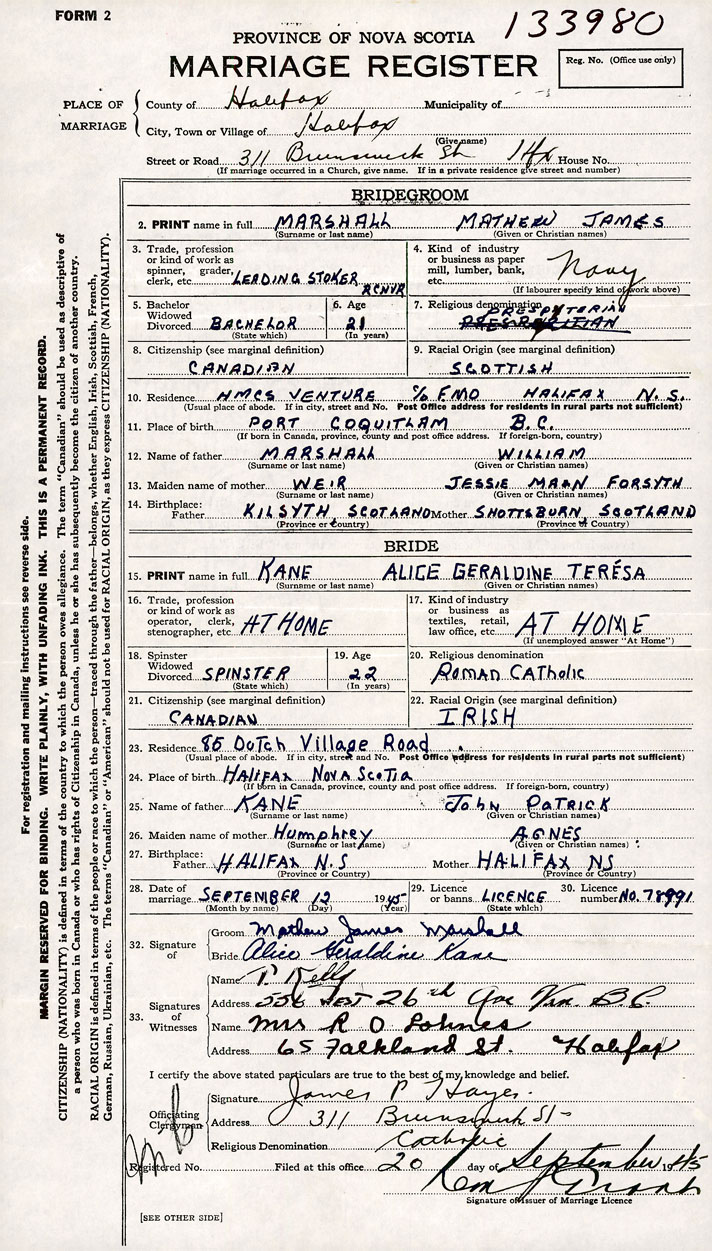 FORM 2
133980
PROVINCE OF NOVA SCOTIA
MARRIAGE REGISTER
Reg. No. (Office use only)
PLACE OF MARRIAGE
County of Halifax Municipality of
City, Town or Village of Halifax
(Give name)
Street or Road 311 Brunswick St Hfx House No.
(If marriage occurred in a Church, give name. If in a private residence give street and number)
BRIDEGROOM
2. PRINT name in full MARSHALL MATHEW JAMES
(Surname or last name) (Given or Christian names)
3. Trade, profession or kind of work as spinner, grader, clerk, etc. LEADING STOKER RCNVR
4. Kind of industry or business as paper mill, lumber, bank, etc. Navy
(If labourer specify kind of work above)
5. Bachelor Widowed Divorced BACHELOR
(State which)
6. Age 21
(In years)
7. Religious denomination PRESBYTERIAN
8. Citizenship (see marginal definition) CANADIAN
9. Racial Origin (see marginal definition) SCOTTISH
10. Residence HMCS VENTURE % FMO HALIFAX N.S.
(Usual place of abode. If in city, street and No. Post Office address for residents in rural parts not sufficient)
11. Place of birth PORT COQUITLAM B.C.
(If born in Canada, province, county and post office address. If foreign-born, country)
12. Name of father MARSHALL WILLIAM
(Surname or last name) (Given or Christian names)
13. Maiden name of mother WEIR JESSIE MANN FORSYTH
(Surname or last name) (Given or Christian names)
14. Birthplace: Father KILSYTH, SCOTLAND Mother SHOTTSBURN, SCOTLAND
(Province or Country) (Province or Country)
BRIDE
15. PRINT name in full KANE ALICE GERALDINE TERESA
(Surname or last name) (Given or Christian names)
16. Trade, profession or kind of work as operator, clerk, stenographer, etc. AT HOME
17. Kind of industry or business as textiles, retail, law office, etc. AT HOME
(If unemployed answer "At Home")
18. Spinster Widowed Divorced SPINSTER
(State which)
19. Age 22
(In years)
20. Religious denomination ROMAN CATHOLIC
21. Citizenship (see marginal definition) CANADIAN
22. Racial Origin (see marginal definition) IRISH
23. Residence 85 Dutch Village Road
(Usual place of abode. If in city, street and No. Post Office address for residents in rural parts not sufficient)
24. Place of birth HALIFAX NOVA SCOTIA
(If born in Canada, province, county and post office address. If foreign-born, country)
25. Name of father KANE John PATRICK
(Surname or last name) (Given or Christian names)
26. Maiden name of mother Humphrey AGNES
(Surname or last name) (Given or Christian names)
27. Birthplace: Father HALIFAX N.S Mother HALIFAX NS
(Province or Country) (Province or Country)
28. Date of marriage SEPTEMBER 12 1945
(Month by name) (Day) (Year)
29. Licence or banns LICENCE
(State which)
30. Licence number NO. 78991
32. Signature of
Groom Mathew James Marshall
Bride Alice Geraldine Kane
33. Signatures of Witnesses
Name P Kelly
Address 556 East 26th Ave Van. B.C.
Name Mrs R O Lohnes
Address 65 Falkland St. Halifax
I certify the above stated particulars are true to the best of my knowledge and belief.
Officiating Clergyman
Signature James P Hayes.
Address 311 Brunswick St-
Religious Denomination Catholic
Registered No. Filed at this office 20 day of September 1945
Signature of Issuer of Marriage Licence
[SEE OTHER SIDE]
For registration and mailing instructions see reverse side.
MARGIN RESERVED FOR BINDING. WRITE PLAINLY, WITH UNFADING INK. THIS IS A PERMANENT RECORD.
CITIZENSHIP (NATIONALITY) is defined in terms of the country to which the person owes allegiance. The term "Canadian" should be used as descriptive of
a person who was born in Canada or who has rights of Citizenship in Canada, unless he or she has subsequently become the citizen of another country.
RACIAL ORIGIN is defined in terms of the people or race to which the person—traced through the father—belongs, whether English, Irish, Scottish, French,
German, Russian, Ukrainian, etc. The terms "Canadian" or "American" should not be used for RACIAL ORIGIN, as they express CITIZENSHIP (NATIONALITY).